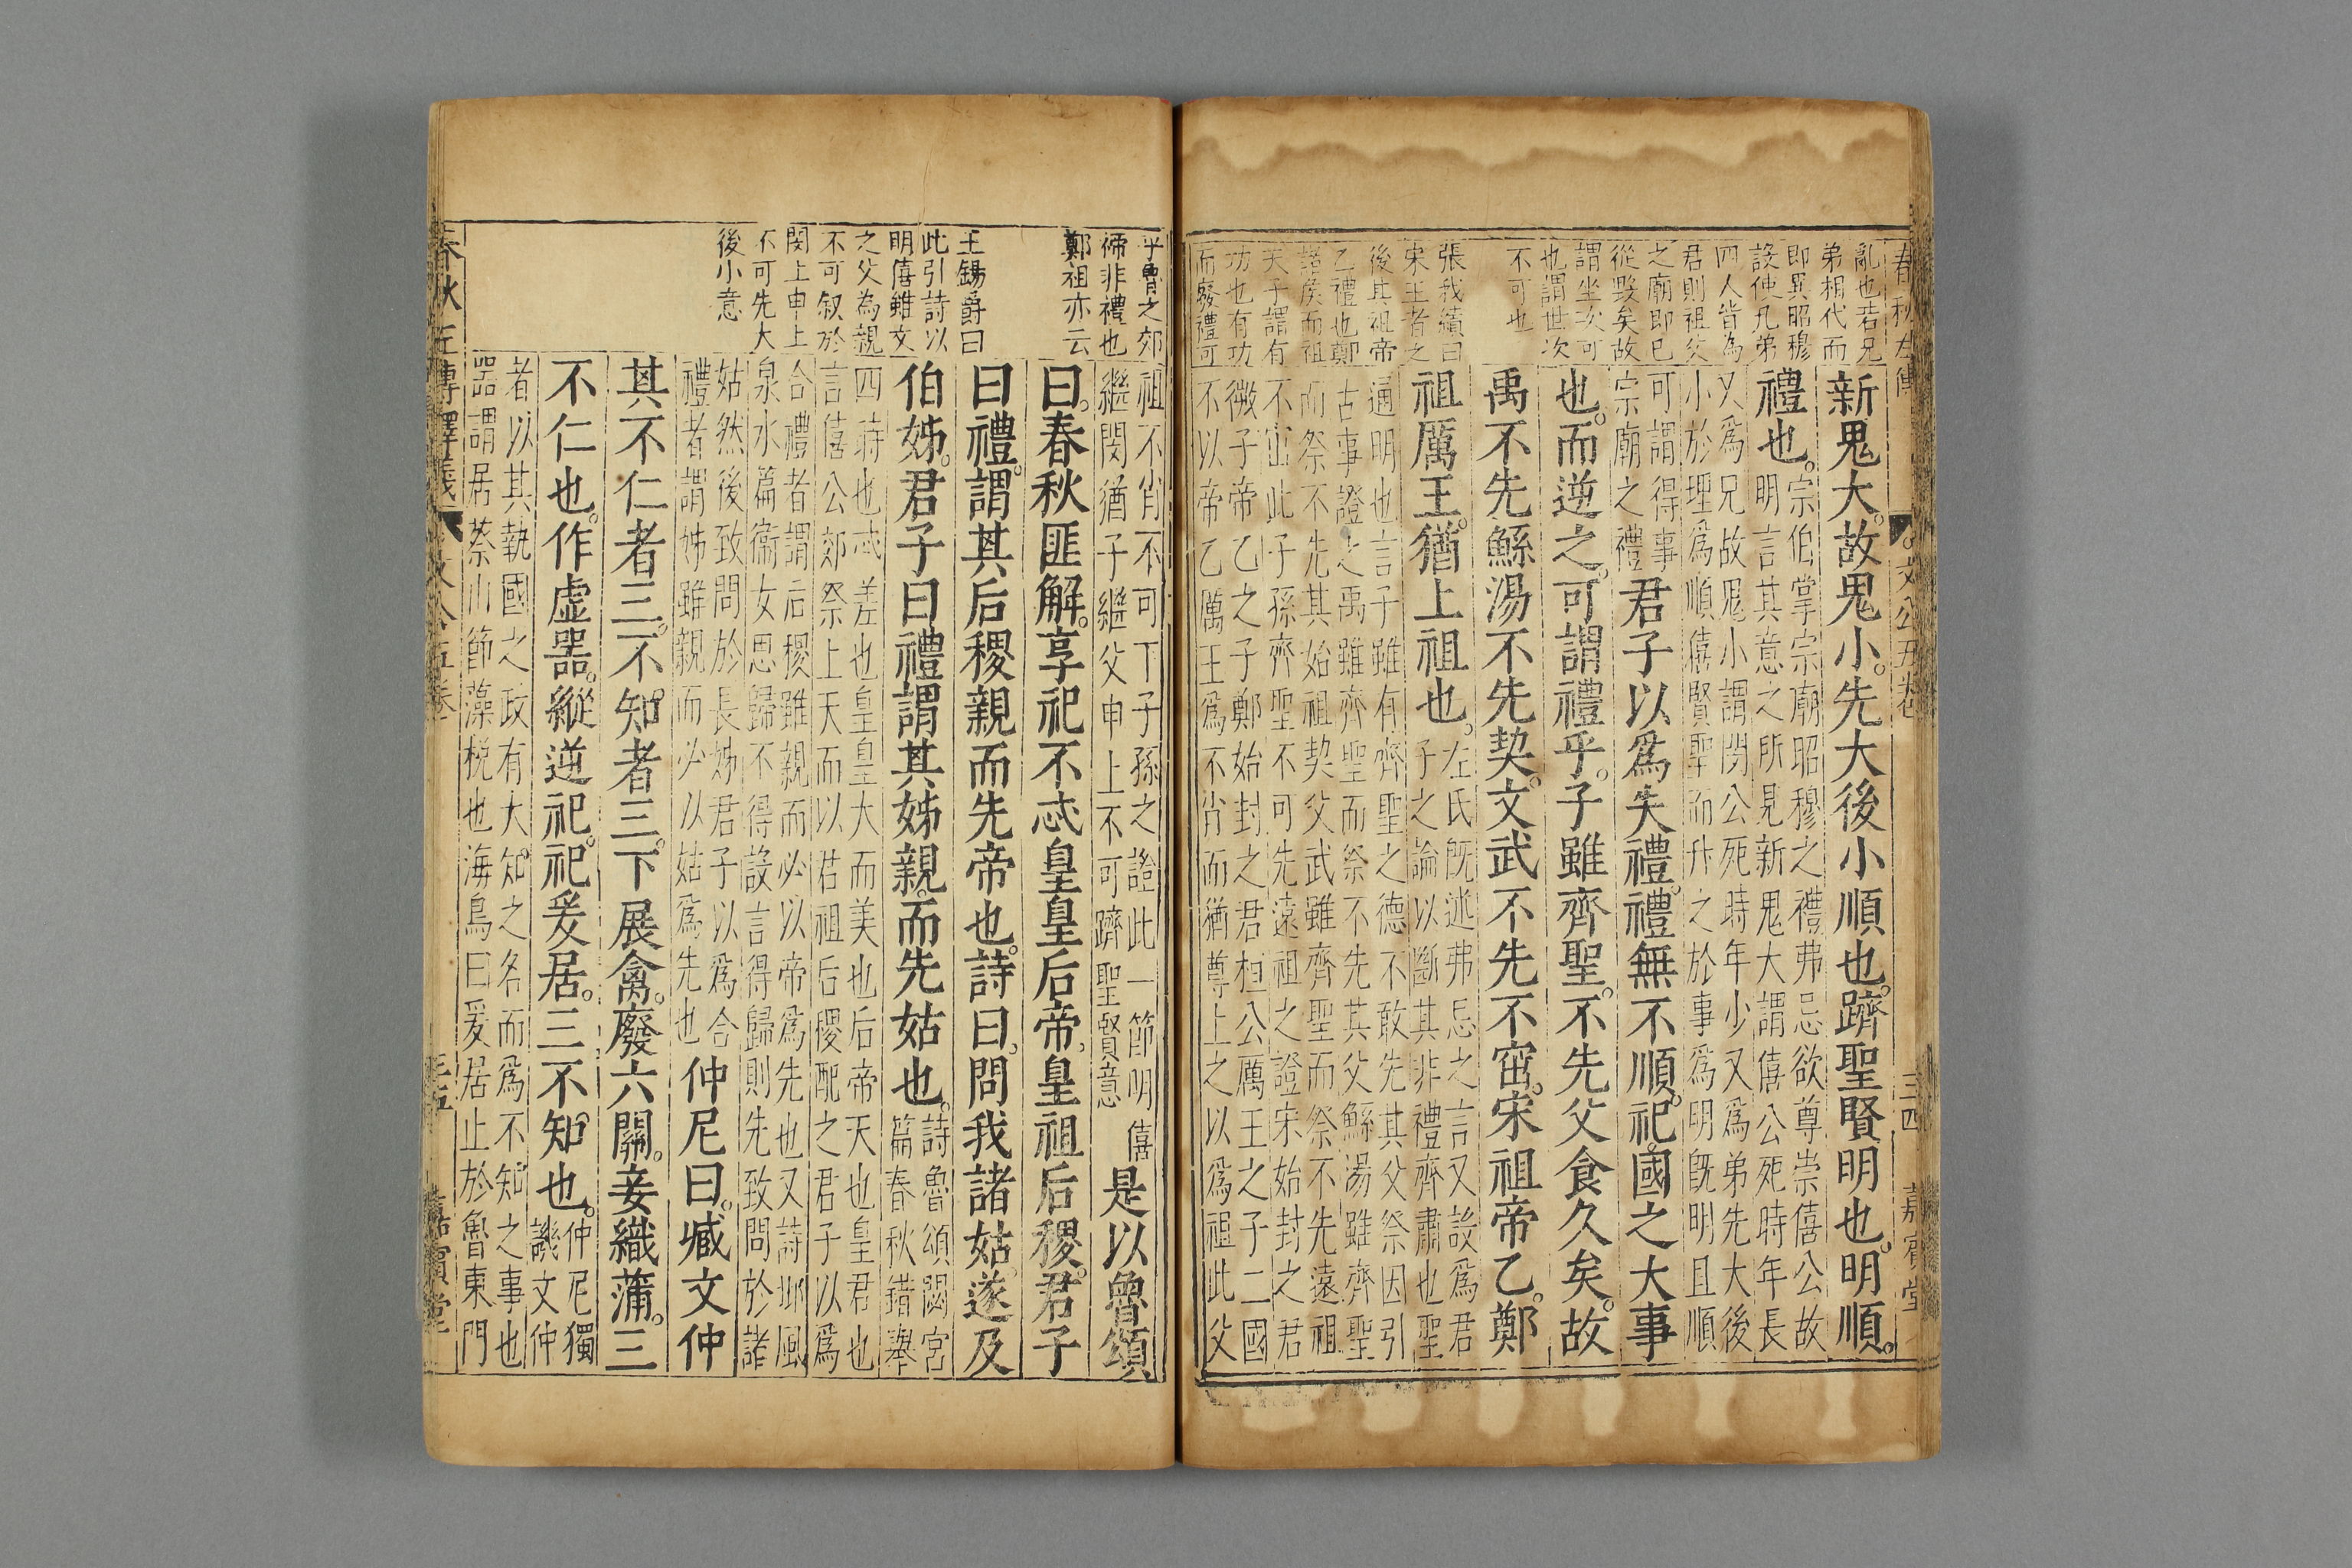 春秋左傳
文公五卷
三四
嘉賓堂
亂也若兄
弟相代而
即異昭穆
設使兄弟
四人皆為
君則祖父
之廟即已
從毀矣故
謂坐次可
也謂世次
不可也
張我續曰
宋王者之
後其祖帝
乙禮也鄭
諸侯而祖
天子謂有
功也有功
而廢禮可
新鬼大。故鬼小。先大後小順也。躋聖賢明也。明順。
禮也。
宗伯掌宗廟昭穆之禮弗忌欲尊崇僖公故
明言其意之所見新鬼大謂僖公死時年長
又爲兄故鬼小謂閔公死時年少又爲弟先大後
小於理爲順僖賢聖而升之於事爲明既明且順
可謂得事
宗廟之禮
君子以爲失禮。禮無不順。祀。國之大事
也。而逆之。可謂禮乎。子雖齊聖。不先父食久矣。故
禹不先鯀湯不先契。文武不先不窋。宋祖帝乙。鄭
祖厲王。猶上祖也。
左氏既述弗忌之言又設爲君
子之論以斷其非禮齊肅也聖
通明也言子雖有齊聖之德不敢先其父祭因引
古事證之禹雖齊聖而祭不先其父鯀湯雖齊聖
而祭不先其始祖契父武雖齊聖而祭不先遠祖
不窋此子孫齊聖不可先遠祖之證宋始封之君
微子帝乙之子鄭始封之君桓公厲王之子二國
不以帝乙厲王爲不肖而猶尊上之以爲祖此父
乎魯之郊
禘非禮也
鄭祖亦云
王錫爵曰
此引詩以
明僖雖文
之父為親
不可叙於
閔上申上
不可先大
後小意
祖不肖不可下子孫之證此一節明僖
繼閔猶子繼父申上不可躋聖賢意
是以魯頌
曰。春秋匪解。享祀不忒皇皇后帝。皇祖后稷。君子
曰禮。謂其后稷親而先帝也。詩曰。問我諸姑。遂及
伯姊。君子曰禮謂其姊親。而先姑也。
詩魯頌閟宮
篇春秋錯舉
四時也忒差也皇皇大而美也后帝天也皇君也
言僖公郊祭上天而以君祖后稷配之君子以爲
合禮者謂后稷雖親而必以帝爲先也又詩邶風
泉水篇衞女思歸不得設言得歸則先致問於諸
姑然後致問於長姊君子以爲合
禮者謂姊雖親而必以姑爲先也
仲尼曰。臧文仲
其不仁者三。不知者三。下展禽。廢六關。妾織蒲。三
不仁也。作虛噐。縱逆祀。祀爰居。三不知也。
仲尼獨
譏文仲
者以其執國之政有大知之名而爲不知之事也
噐謂居蔡山節藻梲也海鳥曰爰居止於魯東門
春秋左傳釋義
文公五卷
三五
嘉賓堂